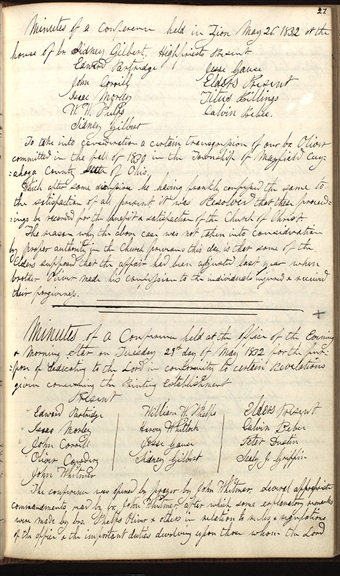 27
Minutes of a conference held in Zion May 26 1832 at the
house of br. Sidney Gilbert, Highpriests Present
Edward Partridge Jesse Gause
John Corrill Elders Present
Isaac Morley Titus Billings
W. W. Phelps Calvin Bebee.
Sidney Gilbert
To take into consideration a certain transgression of our br. Oliver
committed in the fall of 1830 in the Township of Mayfield Cuy-
-ahoga County of Ohio,
Which after some discussion he having frankly confessed the same to
the satisfaction of all present it was Resolved that these proceed-
-ings be recorded for the benefit & satisfaction of the Church of Christ.
The reason why the above case was not taken into consideration
by proper authority in the Church previous this day is that some of the
Elders supposed that the affair had been adjusted last year when
brother Oliver made his confession to the individuals injured & received
their forgiveness.
Minutes of a Conference held at the office of the Evening
& Morning Star on Tuesday 29th day of May 1832 for the pur-
-pose of dedicating to the Lord in conformity to certain Revelations
given concerning the Printing Establishment
Present
Edward Partridge William W. Phelps Elders Present
Isaac Morley Harvey Whitlock Calvin Bebee
John Corrill Jesse Gause Peter Dustin
Oliver Cowdery Sidney Gilbert Seely J. Griffin
John Whitmer
The conference was opened by prayer by John Whitmer, several appropriate
commandments read by br. John Whitmer after which some explanatory remarks
were made by brs. Phelps Oliver & others in relation to rules & regulations
of the office & the important duties devolving upon those whom the Lord